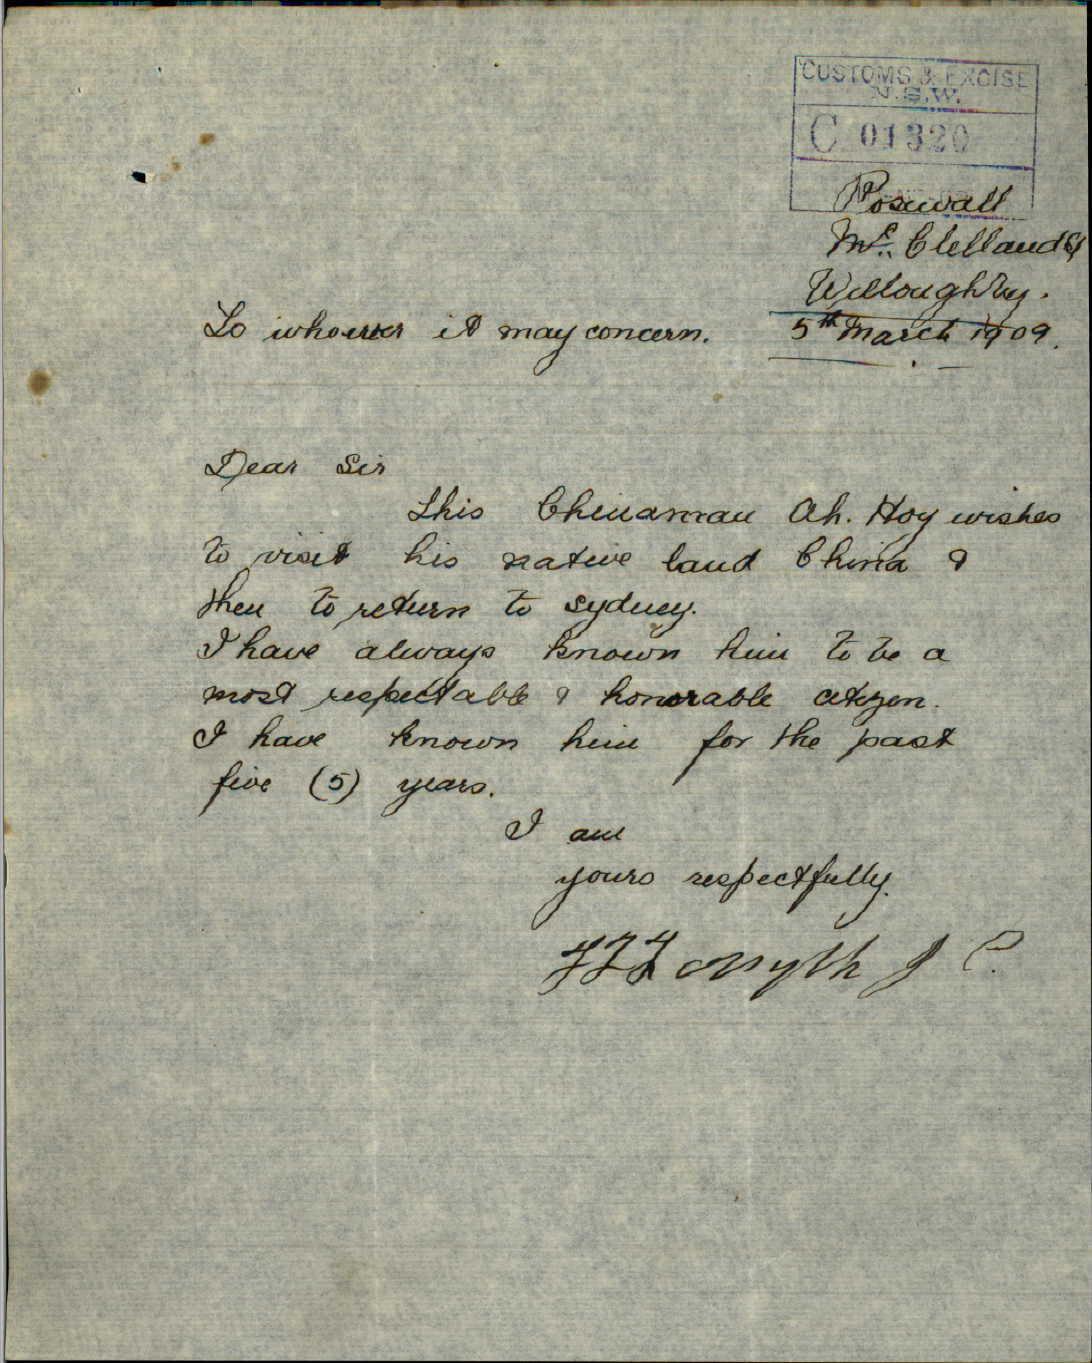 CUSTOMS & EXCISE
N.S.W.
C 01320
Mc. Clelland St
Willoughby.
To whoever it may concern. 5th March 1909.
Dear Sir
This Chinaman Ah. Hoy wishes
to visit his native land China &
then to return to Sydney.
I have always known him to be a
most respectable & honorable citizen.
I have known him for the past
five (5) years.
I am
yours respectfully.
J P.